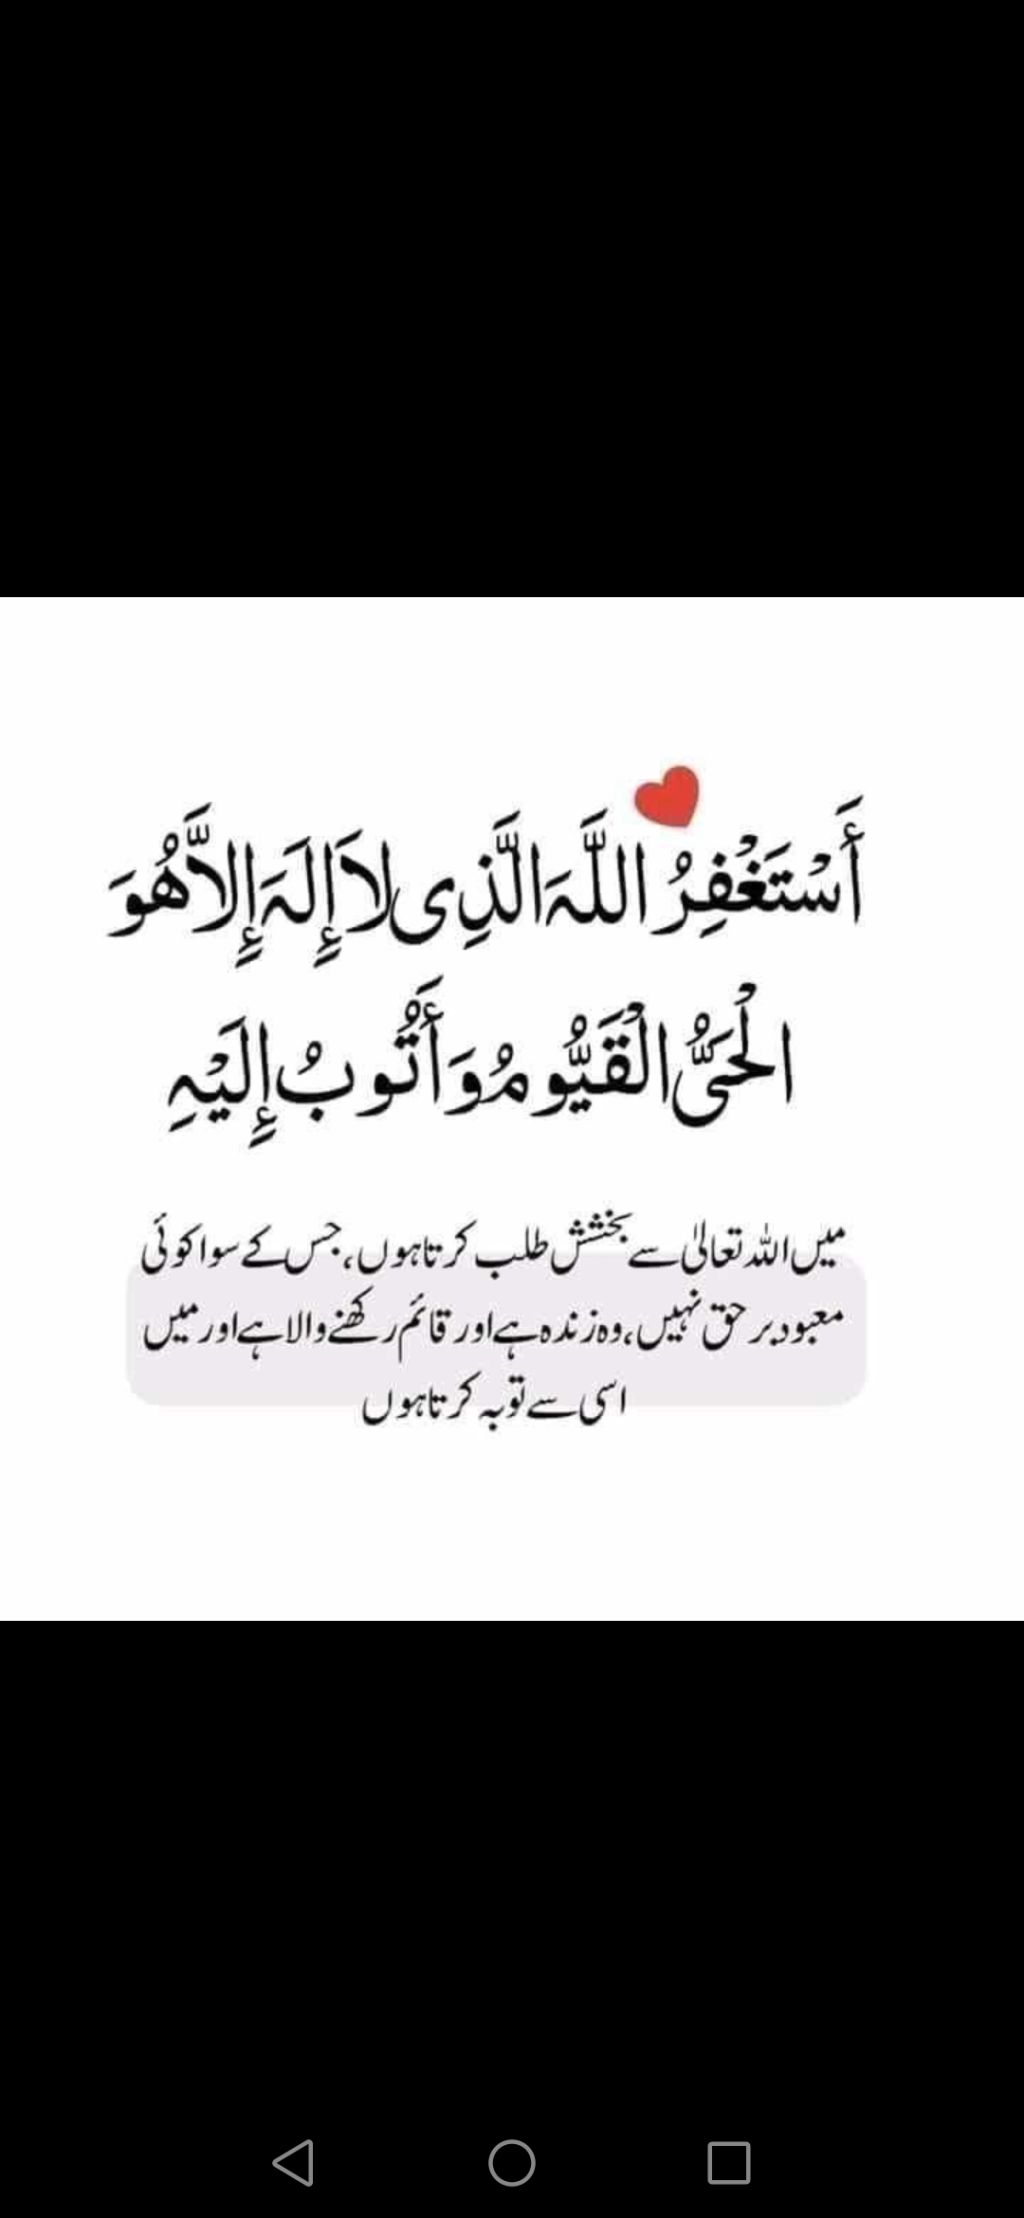 أَسْتَغْفِرُ اللَّهَ الَّذِى لاَ إِلَهَ إِلاَّ هُوَ
الْحَىُّ الْقَيُّومُ وَأَتُوبُ إِلَيْهِ
میں اللہ تعالیٰ سے بخشش طلب کرتا ہوں، جس کے سوا کوئی
معبود بر حق نہیں، وہ زندہ ہے اور قائم رکھنے والا ہے اور میں
اسی سے توبہ کرتا ہوں